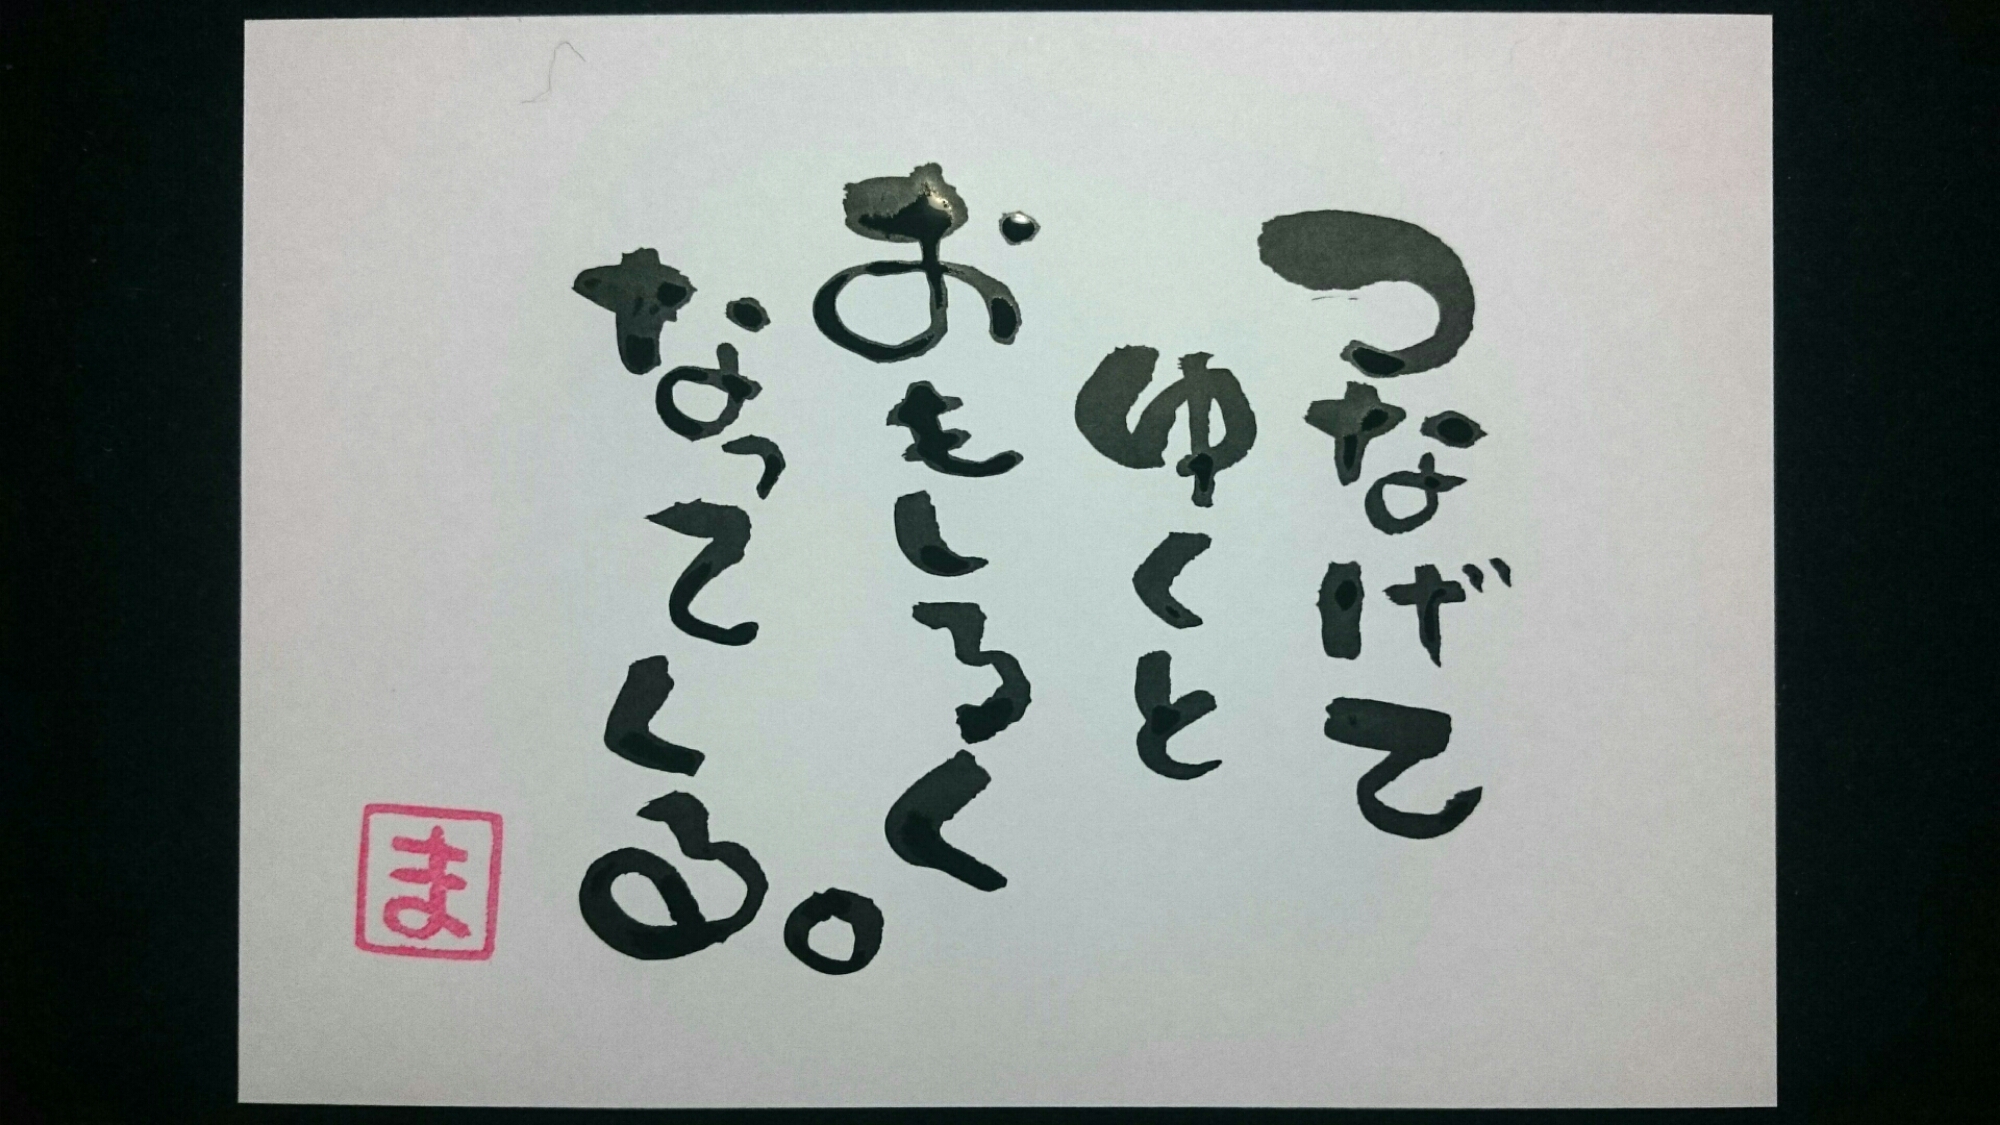 つなげて
ゆくと
おもしろく
なってくる。
ま